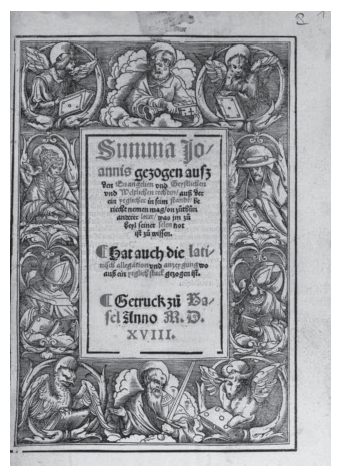 Summa Jo⸗
annis gezogen ausz
den Euangelien vnd Geystlichen
vnd Weltlichen rechten/ auß der
ein yeglicher in sim stande/ be
richt nemen mag/ on zůthůn
anderer leut/ was jm zů
heyl seiner selen not
ist zů wissen.
¶Hat auch die lati⸗
nisch allegation vnd anzeygung wo
auß ein yeglich stuck gezogen ist.
¶Getruck zů Ba⸗
sel Anno M. D.
XVIII.